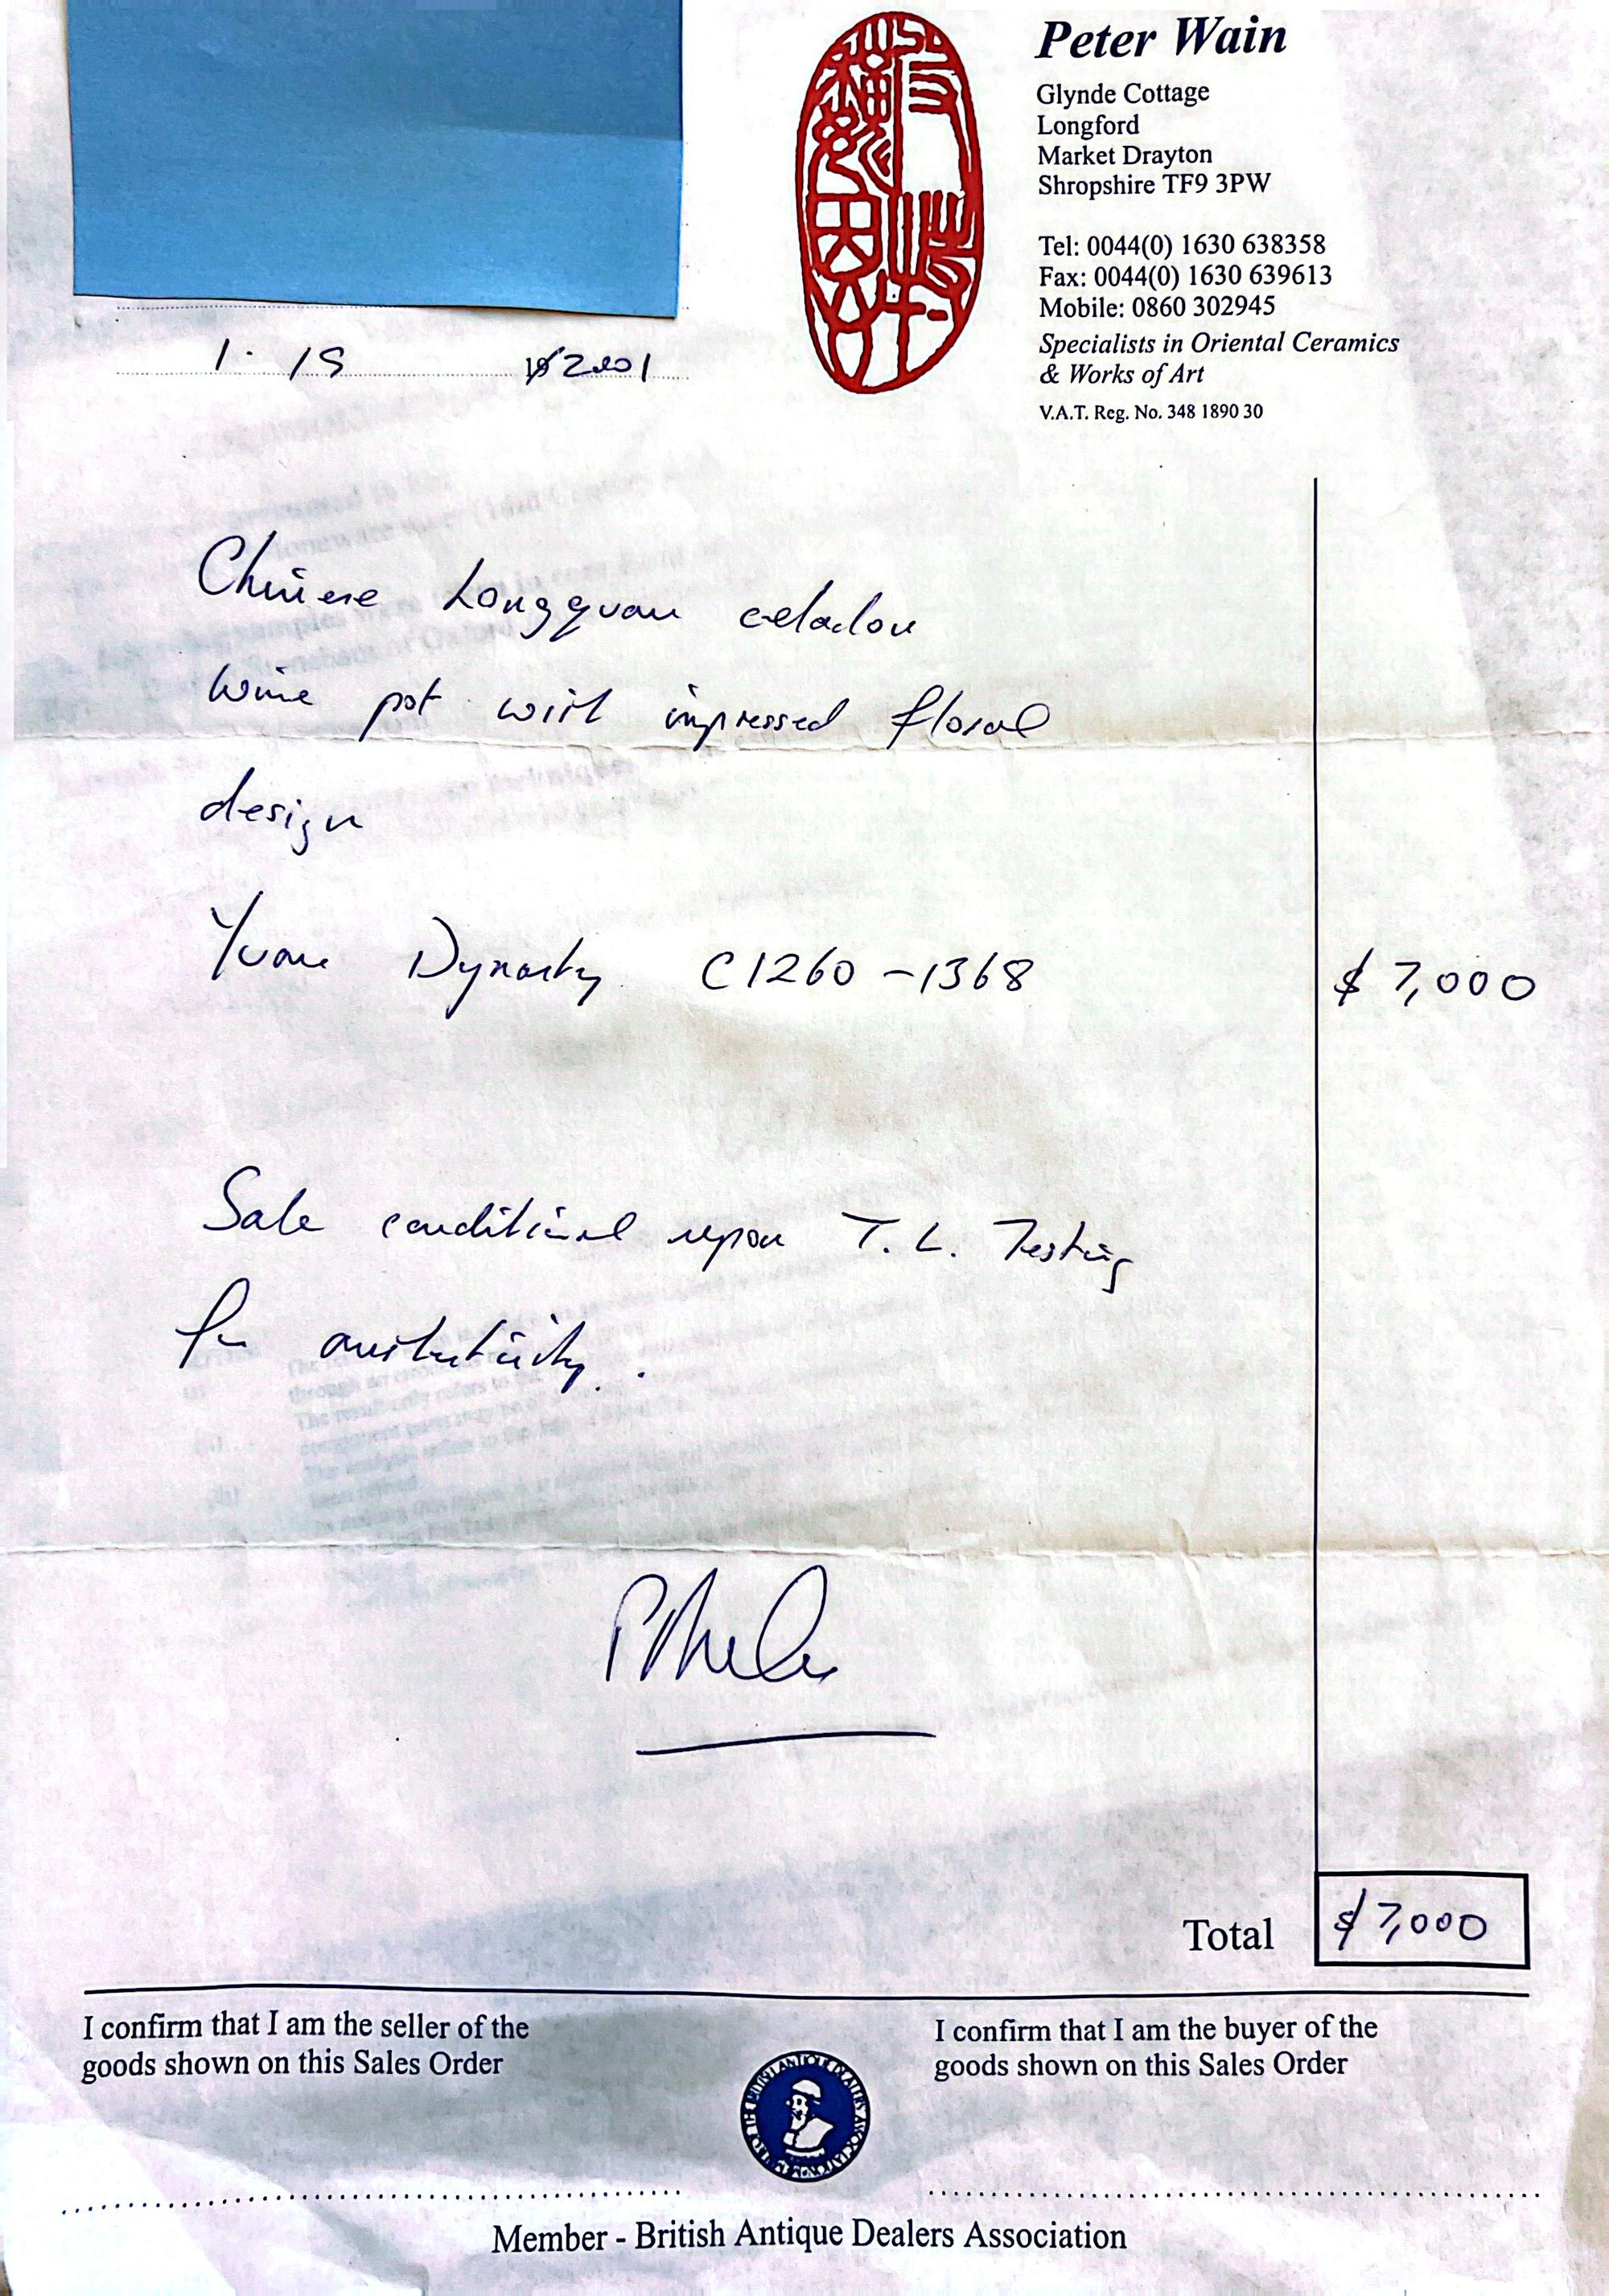 Peter Wain
Glynde Cottage
Longford
Market Drayton
Shropshire TF9 3PW
Tel: 0044(0) 1630 638358
Fax: 0044(0) 1630 639613
Mobile: 0860 302945
Specialists in Oriental Ceramics
& Works of Art
V.A.T. Reg. No. 348 1890 30
2001
Chinese Longquan celadon
wine pot with impressed floral
design
Yuan Dynasty C1260 - 1368 $ 7,000
Sale conditional upon T. L. Testing
for authenticity.
Total $ 7,000
I confirm that I am the seller of the
goods shown on this Sales Order
I confirm that I am the buyer of the
goods shown on this Sales Order
Member - British Antique Dealers Association